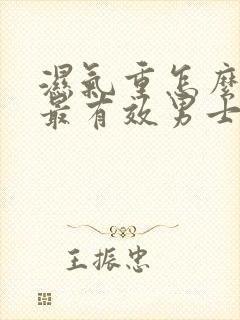 濕氣重怎麼
最有效男士
王振忠